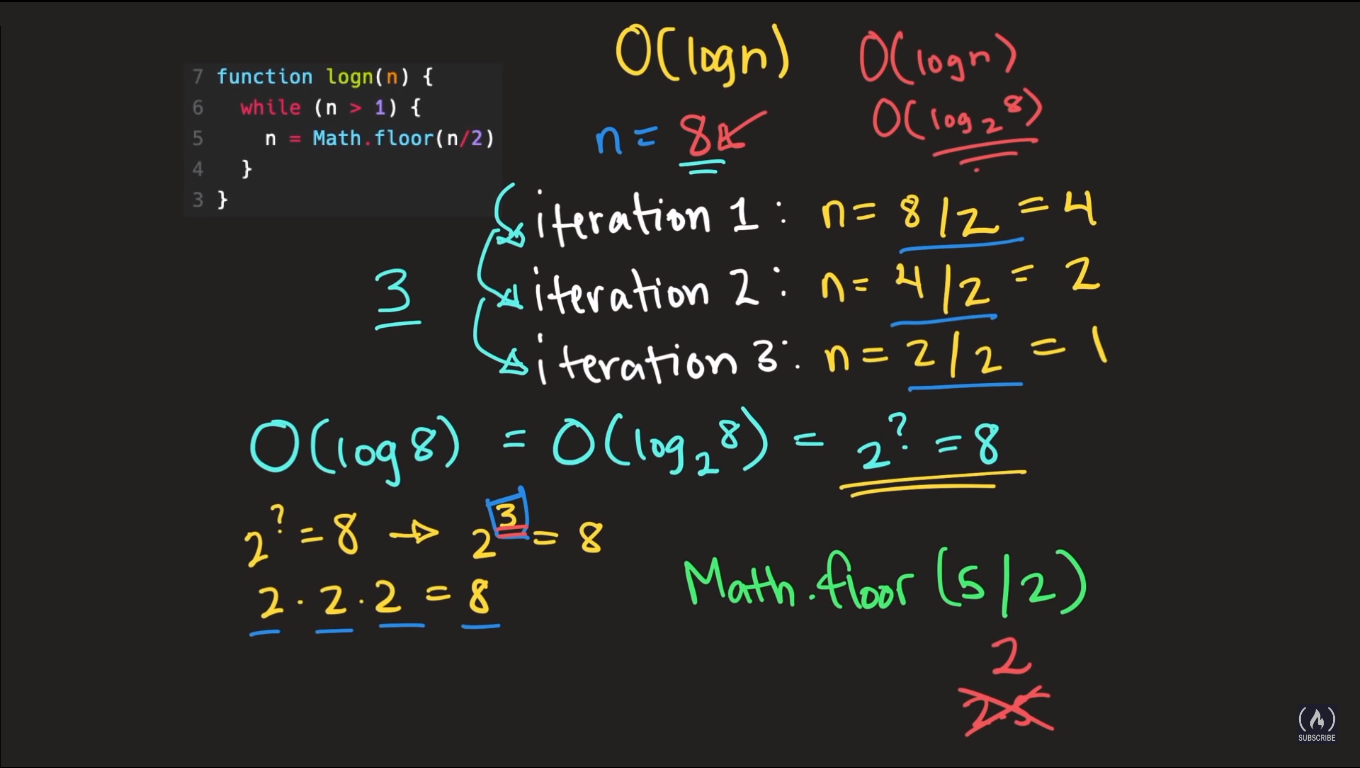 7 function logn(n) {
6 while (n > 1) {
5 n = Math.floor(n/2)
4 }
3 }
O(logn)
O(logn)
n = 8
O(log₂8)
iteration 1 : n = 8/2 = 4
iteration 2 : n = 4/2 = 2
iteration 3 : n = 2/2 = 1
3
O(log8) = O(log₂8) = 2^? = 8
2^? = 8 → 2^3 = 8
2 · 2 · 2 = 8
Math.floor(5/2)
2
2.5
SUBSCRIBE